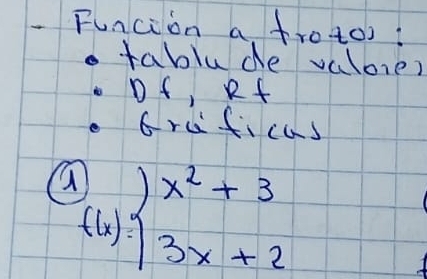 - Función a trozos:
• tabla de valores
• Df, Rf
• Gráficas
① x² + 3
f(x) = {
3x + 2